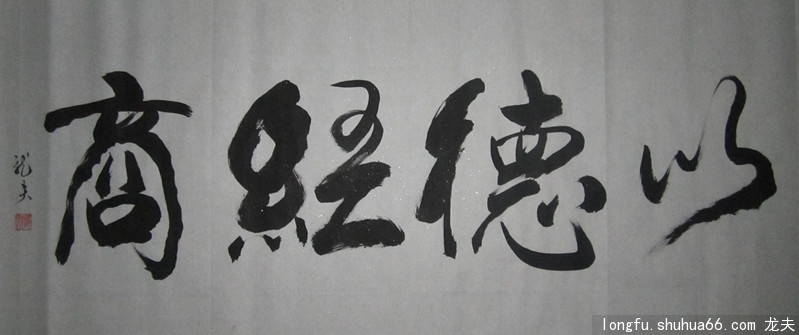 以德经商
龙夫
longfu.shuhua66.com 龙夫